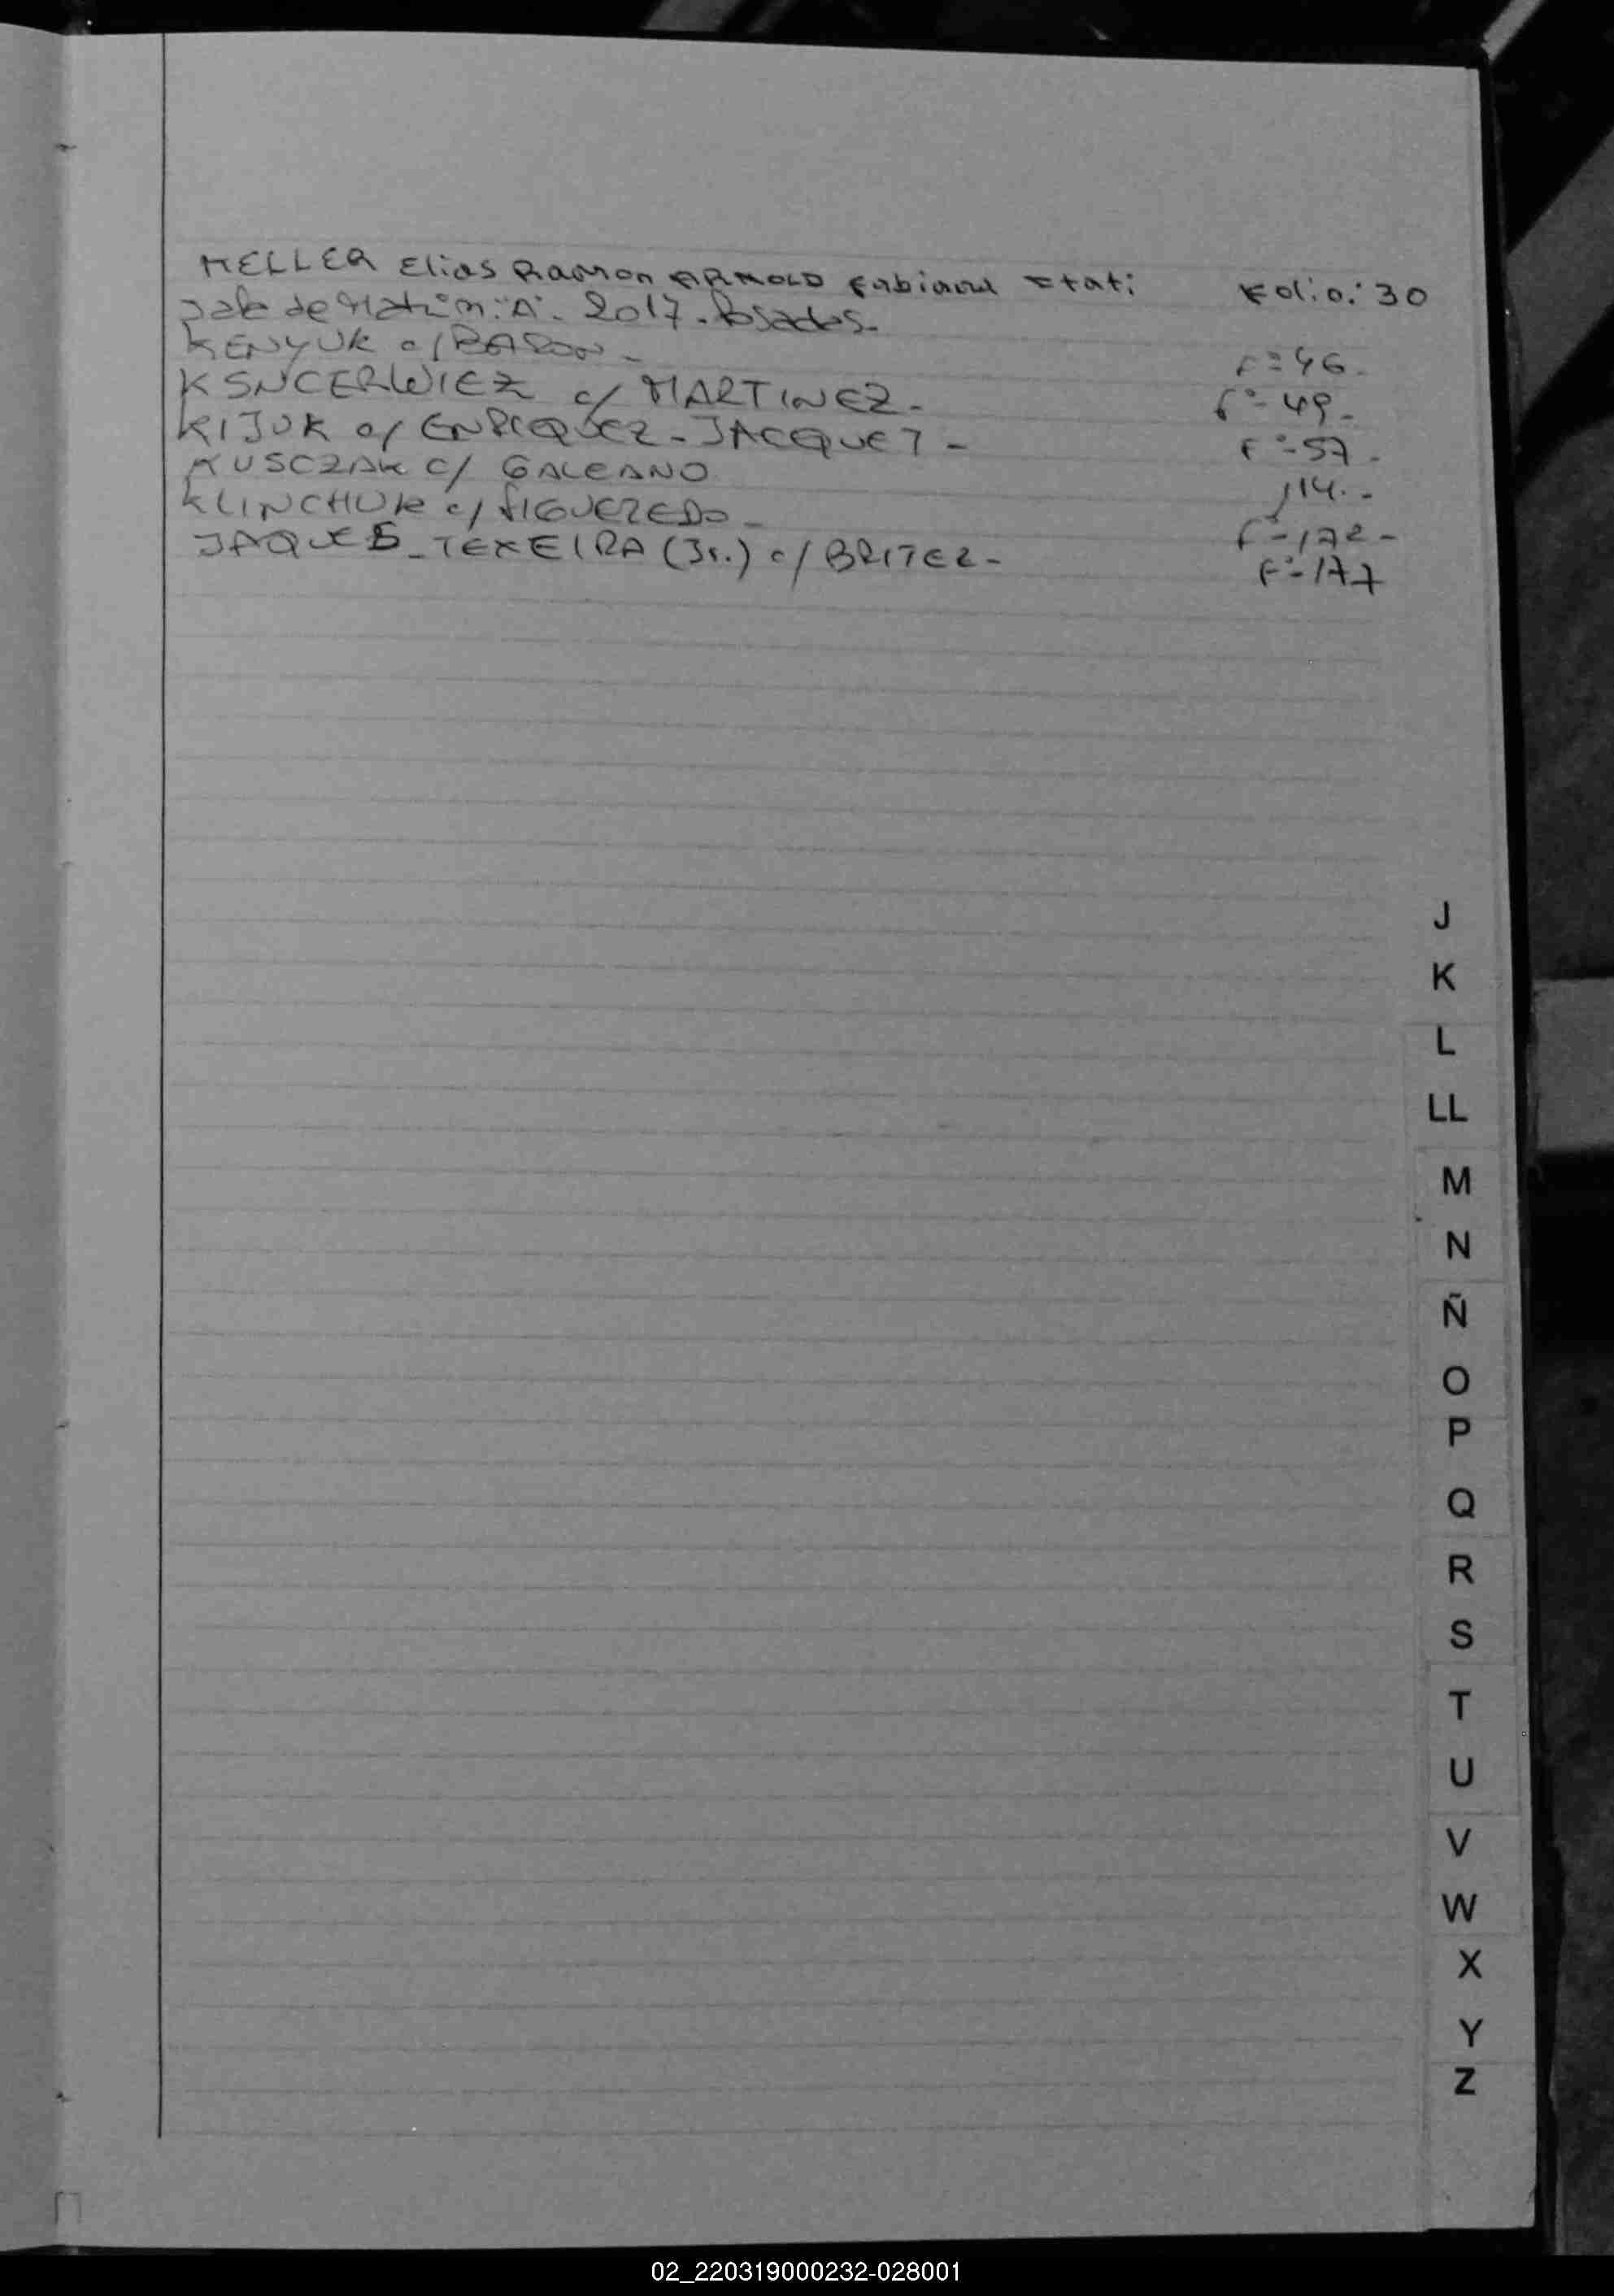 KELLER Elias Ramon ARNOLD Fabiana Itati Folio: 30
de 2017. Posadas.
KENYUK c/ BARON - Fº= 46.
KSNCERWIEZ c/ MARTINEZ. Fº- 49-
KIJUK c/ ENRIQUEZ - JACQUET - Fº-57.
KUSCZAK c/ GALEANO 114.-
KLINCHUK c/ FIGUEREDO - Fº-172-
JAQUES - TEXEIRA (Jr.) c/ BRITEZ - Fº-177
J
K
L
LL
M
N
Ñ
O
P
Q
R
S
T
U
V
W
X
Y
Z
02_220319000232-028001